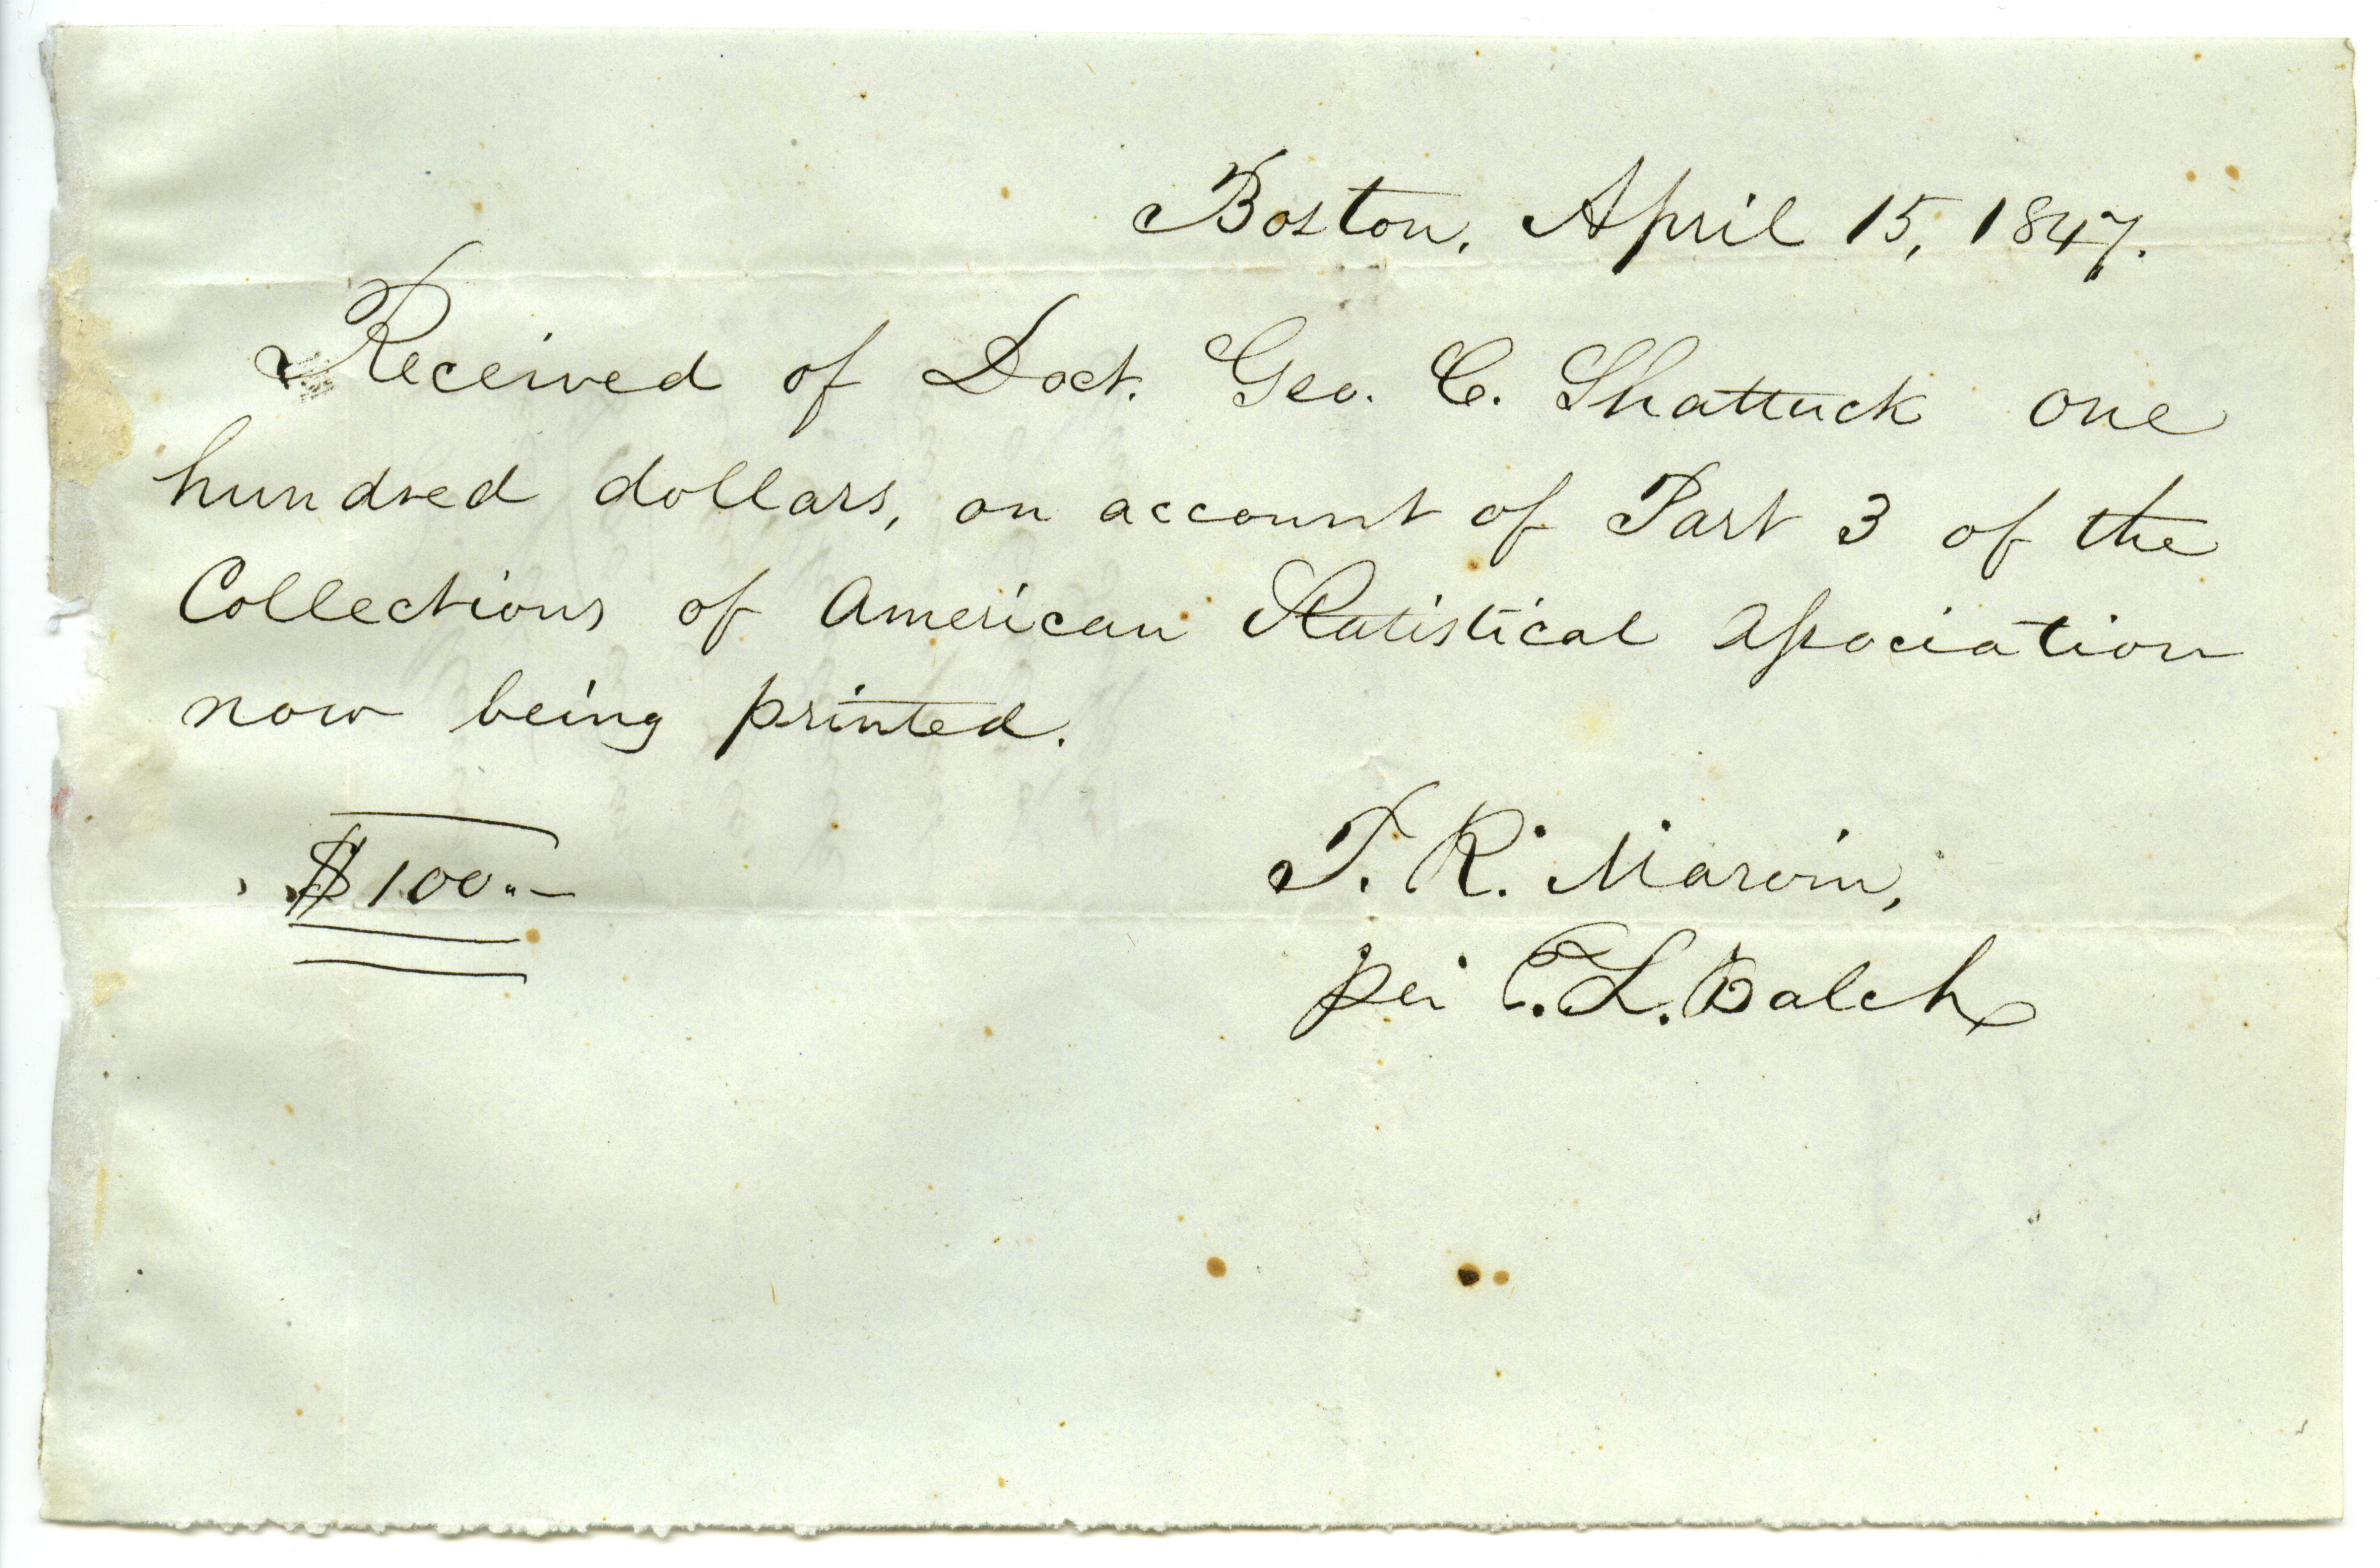 Boston, April 15, 1847.
Received of Doct. Geo. C. Shattuck one
hundred dollars, on account of Part 3 of the
Collections of American Statistical Association
now being printed.
$100.–
T. R. Marvin,
per T. L. Balch